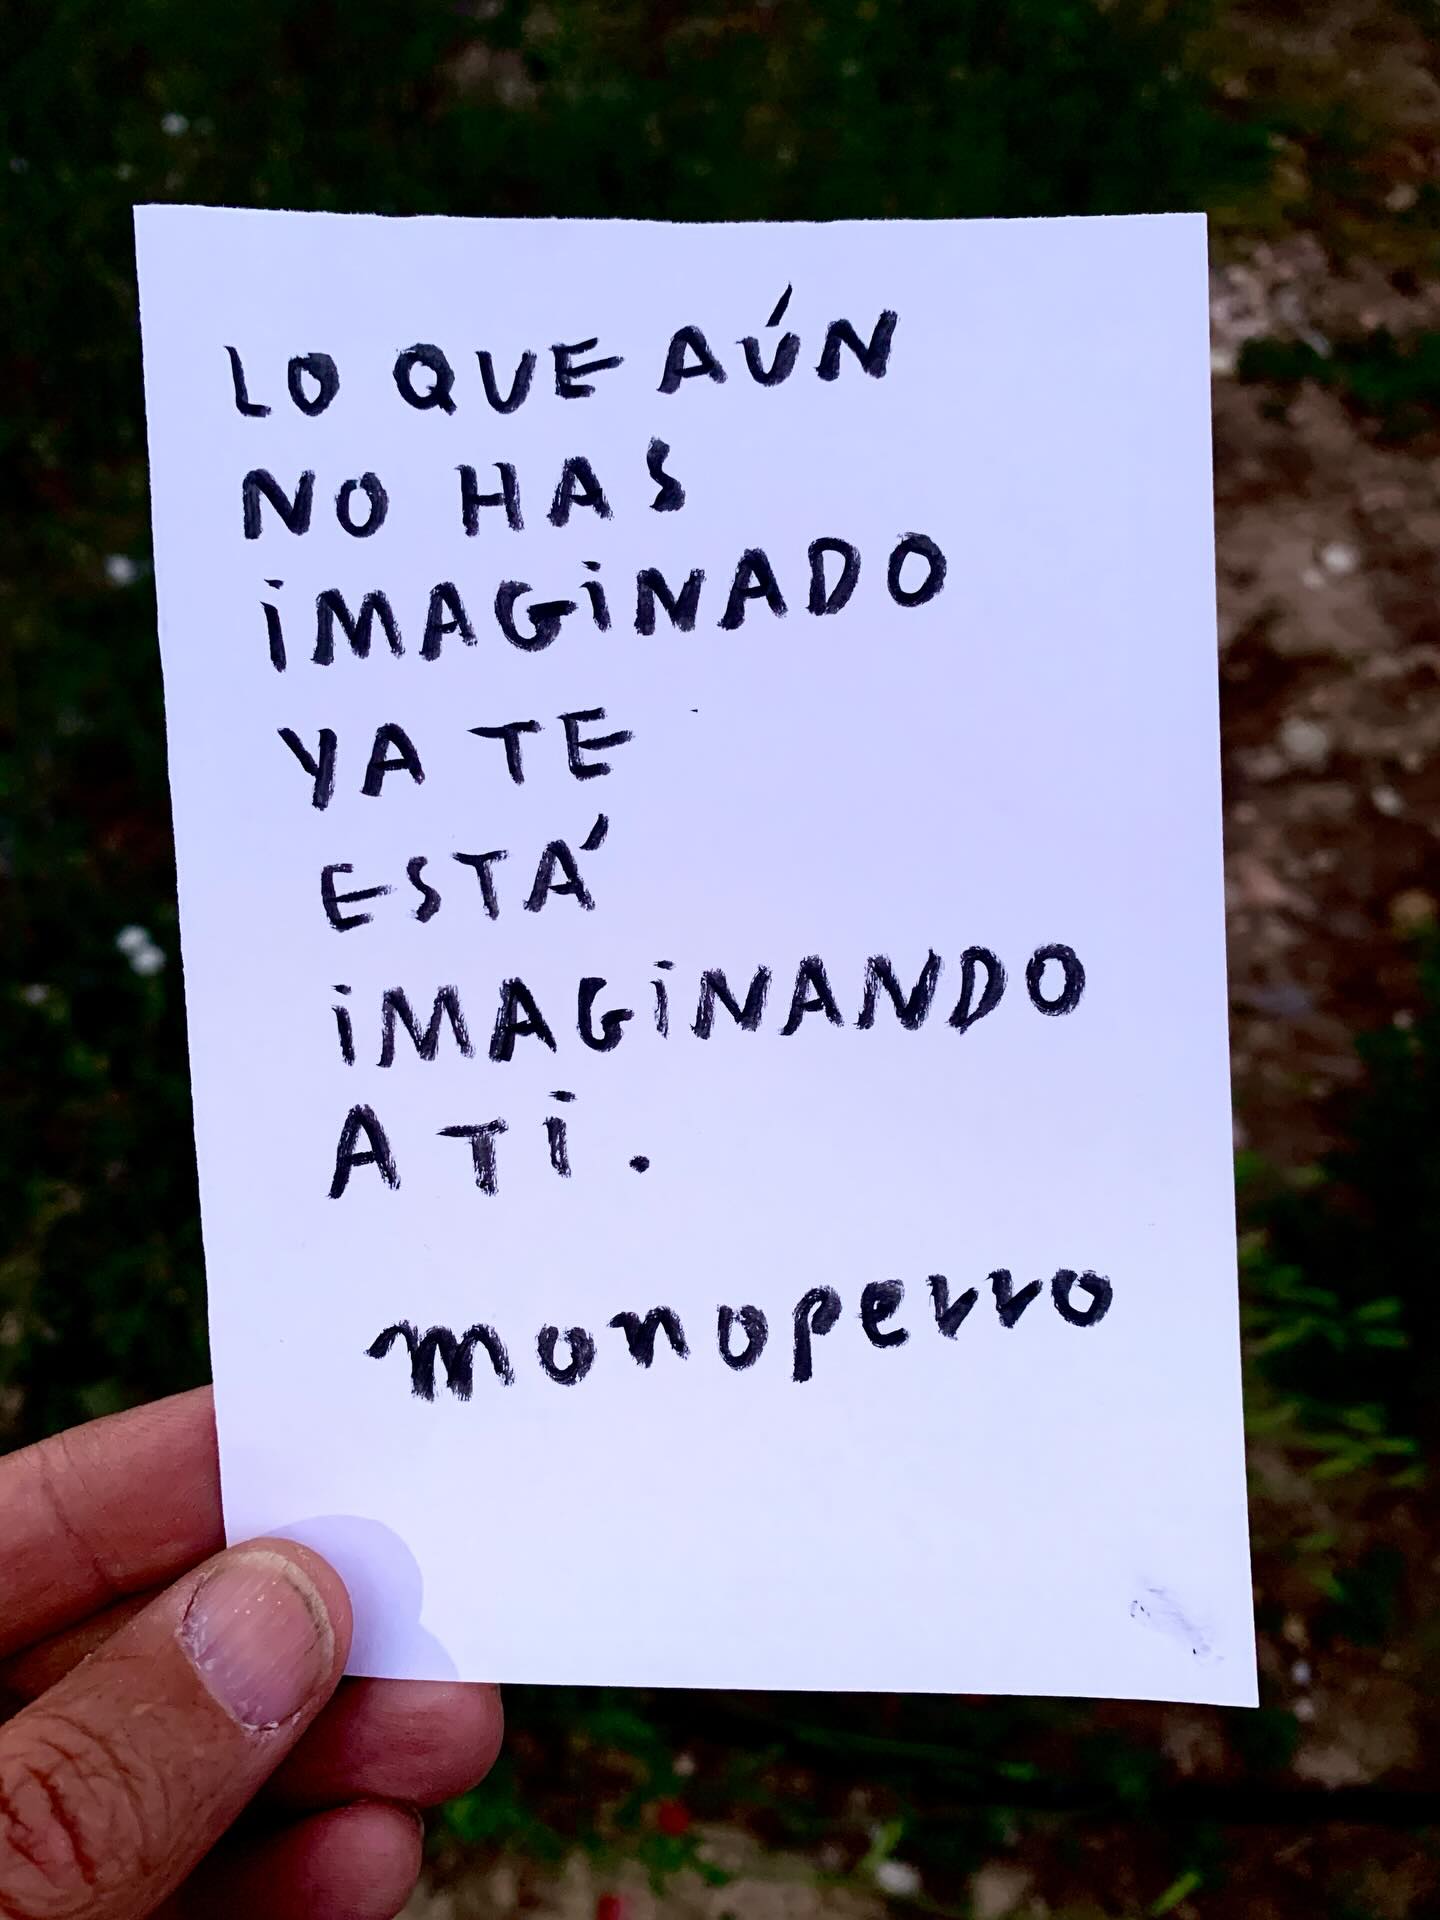 LO QUE AÚN
NO HAS
iMAGiNADO
YA TE
ESTÁ
iMAGiNANDO
A Ti.
monoperro